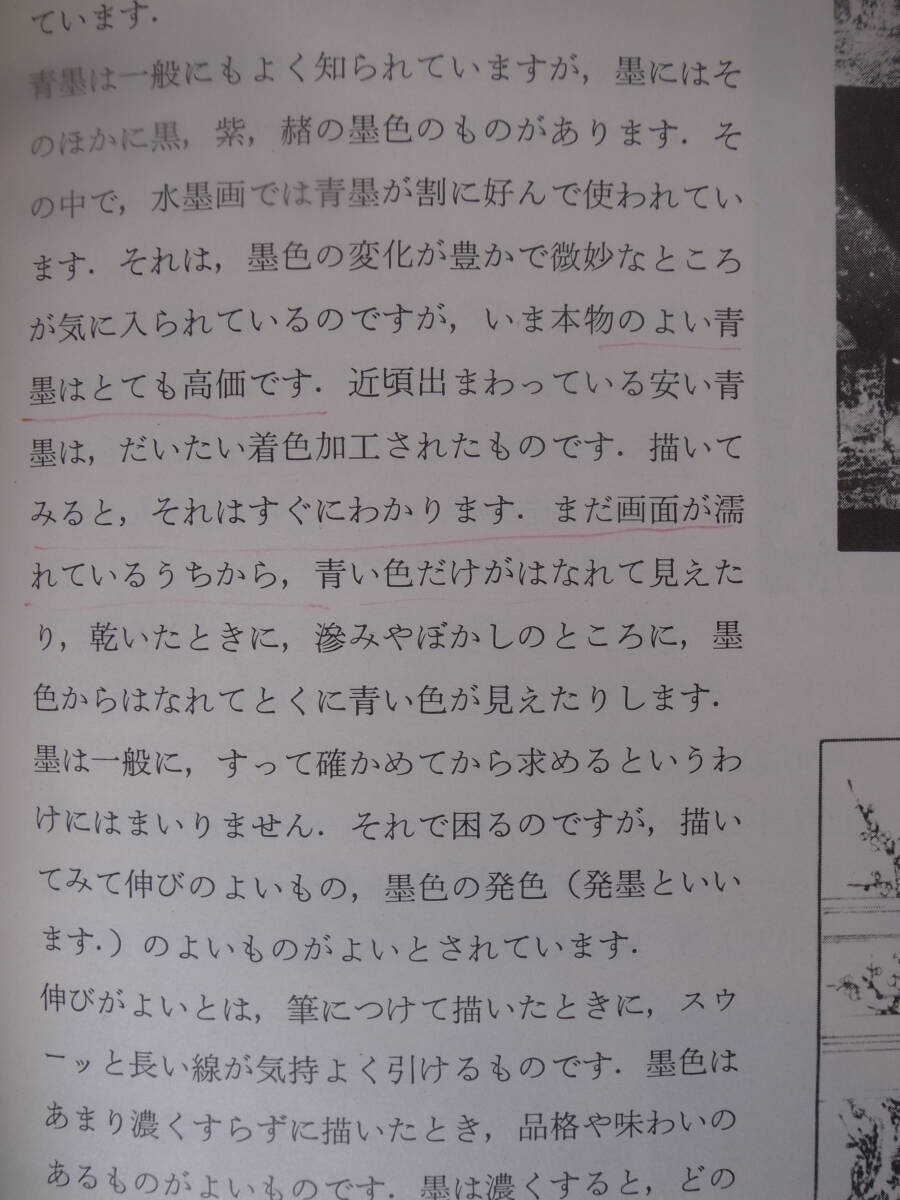 ています.
青墨は一般にもよく知られていますが, 墨にはそ
のほかに黒, 紫, 赭の墨色のものがあります. そ
の中で, 水墨画では青墨が割に好んで使われてい
ます. それは, 墨色の変化が豊かで微妙なところ
が気に入られているのですが, いま本物のよい青
墨はとても高価です. 近頃出まわっている安い青
墨は, だいたい着色加工されたものです. 描いて
みると, それはすぐにわかります. まだ画面が濡
れているうちから, 青い色だけがはなれて見えた
り, 乾いたときに, 滲みやぼかしのところに, 墨
色からはなれてとくに青い色が見えたりします.
墨は一般に, すって確かめてから求めるというわ
けにはまいりません. それで困るのですが, 描い
てみて伸びのよいもの, 墨色の発色（発墨といい
ます.）のよいものがよいとされています.
伸びがよいとは, 筆につけて描いたときに, スウ
ーッと長い線が気持よく引けるものです. 墨色は
あまり濃くすらずに描いたとき, 品格や味わいの
あるものがよいものです. 墨は濃くすると, どの